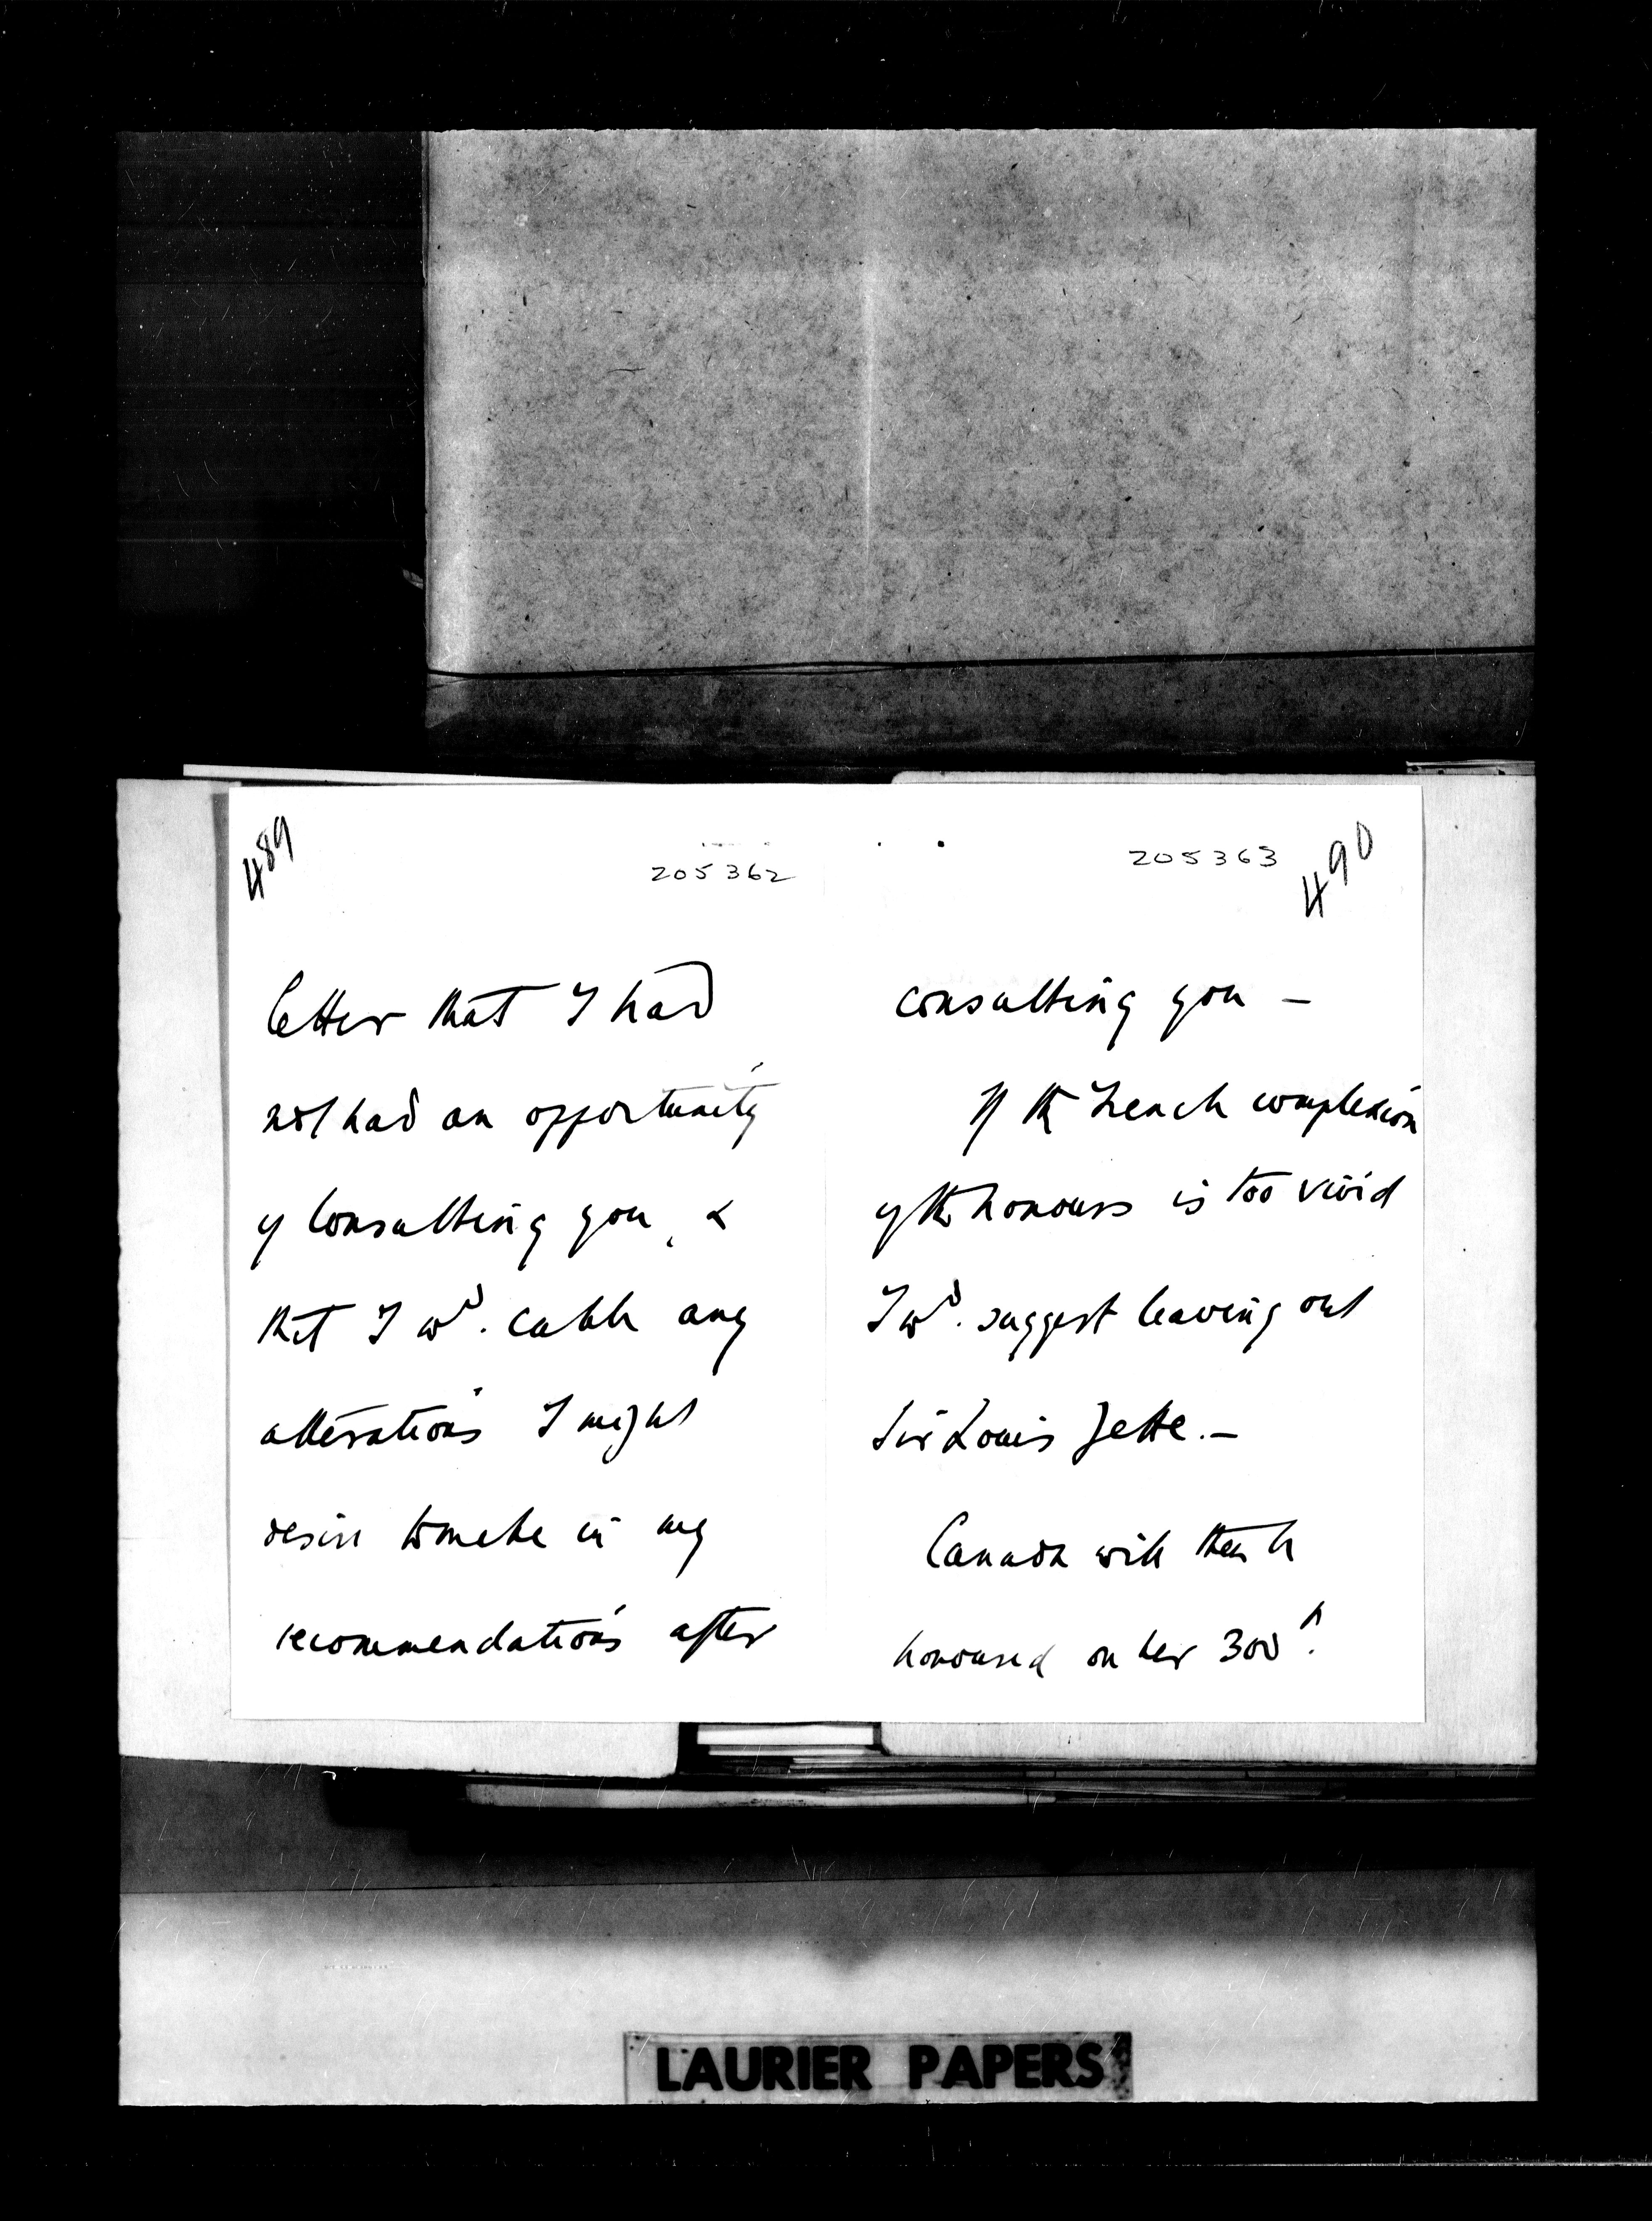 489
205362
letter that I had
not had an opportunity
of consulting you, &
that I wd. cable any
alterations I might
desire to make in my
recommendations after
205363
490
consulting you —
If the French complexion
of the honours is too vivid
I wd. suggest leaving out
Sir Louis Jette. —
Canada will then be
honoured on her 300th.
LAURIER PAPERS